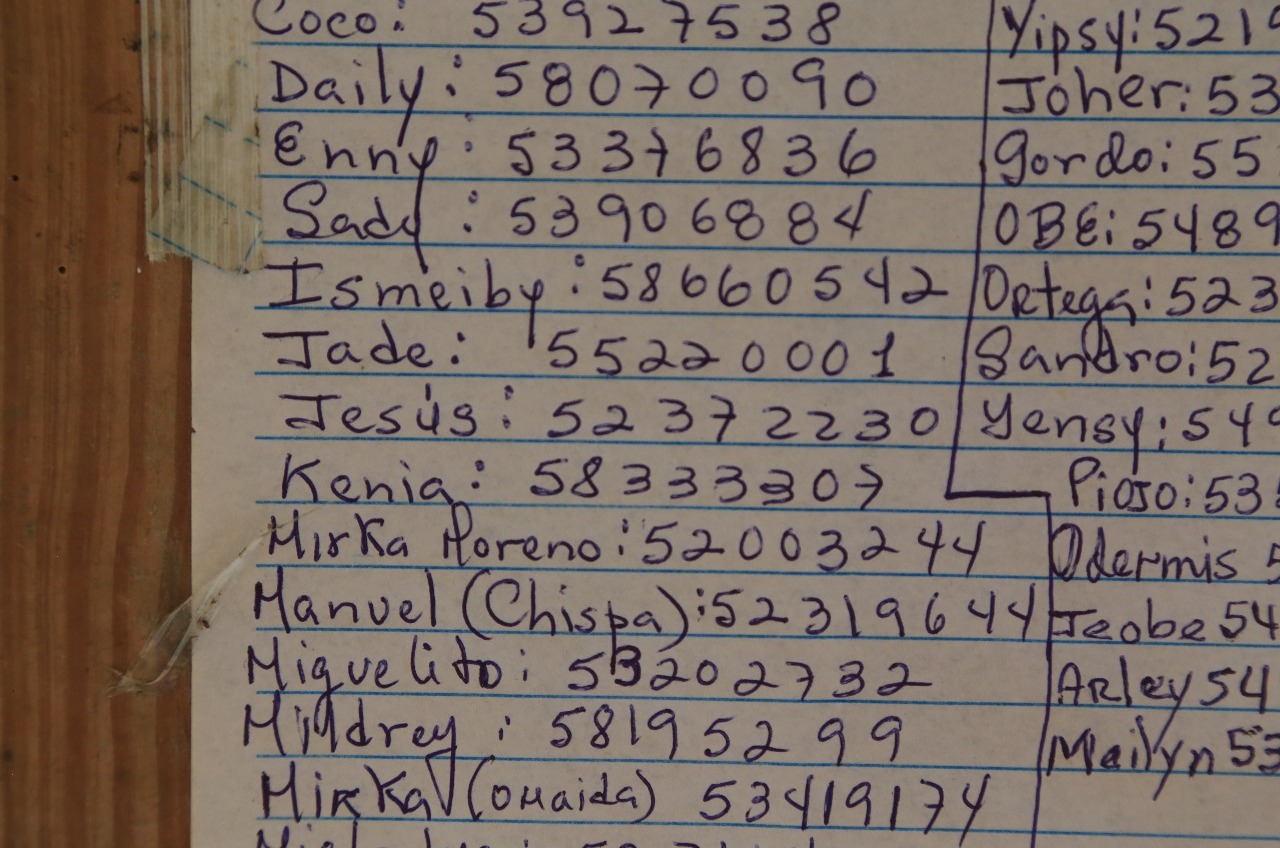 Coco: 53927538
Daily: 58070090
Enny: 53376836
Sady: 53906884
Ismeiby: 58660542
Jade: 55220001
Jesús: 52372230
Kenia: 58333307
Mirka Moreno: 52003244
Manuel (Chispa): 52319644
Miguelito: 53202732
Mildrey: 58195299
Mirka (Omaida) 53419174
Yipsy: 5219
Joher: 53
Gordo: 55
OBE: 5489
Ortega: 523
Sandro: 52
Yensy: 549
Piojo: 53
Odermis 5
Jeobe 54
Arley 54
Mailyn 53